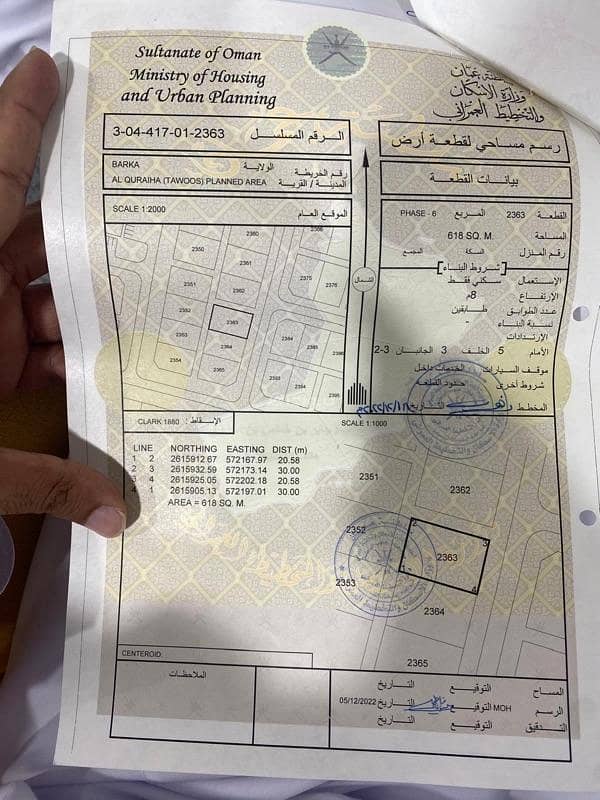 Sultanate of Oman
Ministry of Housing
and Urban Planning
سلطنة عمان
وزارة الإسكان
والتخطيط العمراني
3-04-417-01-2363 الرقم المسلسل
رسم مساحي لقطعة أرض
BARKA الولاية
رقم الخريطة
AL QURAIHA (TAWOOS) PLANNED AREA المدينة / القرية
بيانات القطعة
SCALE 1:2000 الموقع العام
القطعة 2363 المربع PHASE - 6
المساحة 618 SQ. M.
رقم المنزل السكة المجمع
شروط البناء
الإستعمال سكني فقط
الإرتفاع 8م
عدد الطوابق طابقين
نسبة البناء -
الإرتدادات
الأمام 5 الخلف 3 الجانبان 2-3
موقف السيارات الخدمات داخل
شروط أخرى حدود القطعة
المخطط التاريخ
الشمال
2360
2350
2361
2375
2376
2351
2362
2352
2363
2353
2364
2384
2354
2365
2385
2386
2353
2394
2395
CLARK 1880 الإسقاط :
SCALE 1:1000
LINE NORTHING EASTING DIST (m)
1 2 2615912.67 572167.97 20.58
2 3 2615932.59 572173.14 30.00
3 4 2615925.05 572202.18 20.58
4 1 2615905.13 572197.01 30.00
AREA = 618 SQ. M.
2351
2362
2352
2
3
2363
1
4
2353
2364
2365
CENTEROID:
الملاحظات
المساح التوقيع التاريخ
الرسم MOH التوقيع التاريخ 05/12/2022
التدقيق التوقيع التاريخ